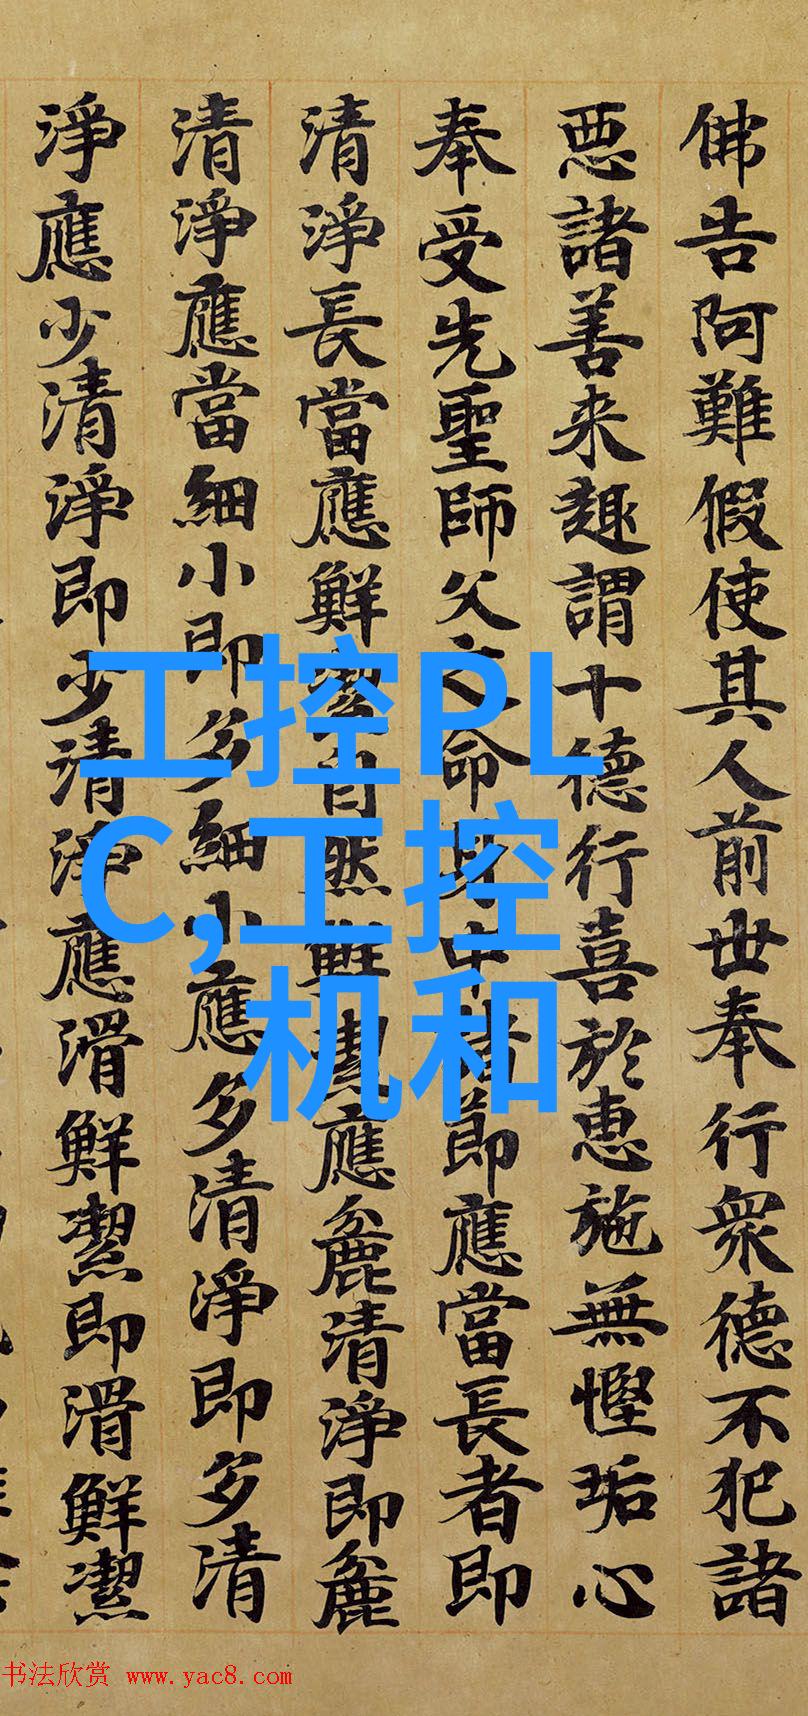 佛告阿難假使其人前世奉行衆德不犯諸
惡諸善来趣謂十德行喜於惠施無慳垢心
奉受先聖師父之命身中諸節應當長者即
清淨長當應鮮潔自然鮮潔應麁清淨即麁
清淨應當細小即多細小應多清淨即多清
淨應少清淨即少清淨應滑鮮潔即滑鮮潔
工控PL
C,工控
机和
书法欣赏 www.yac8.com